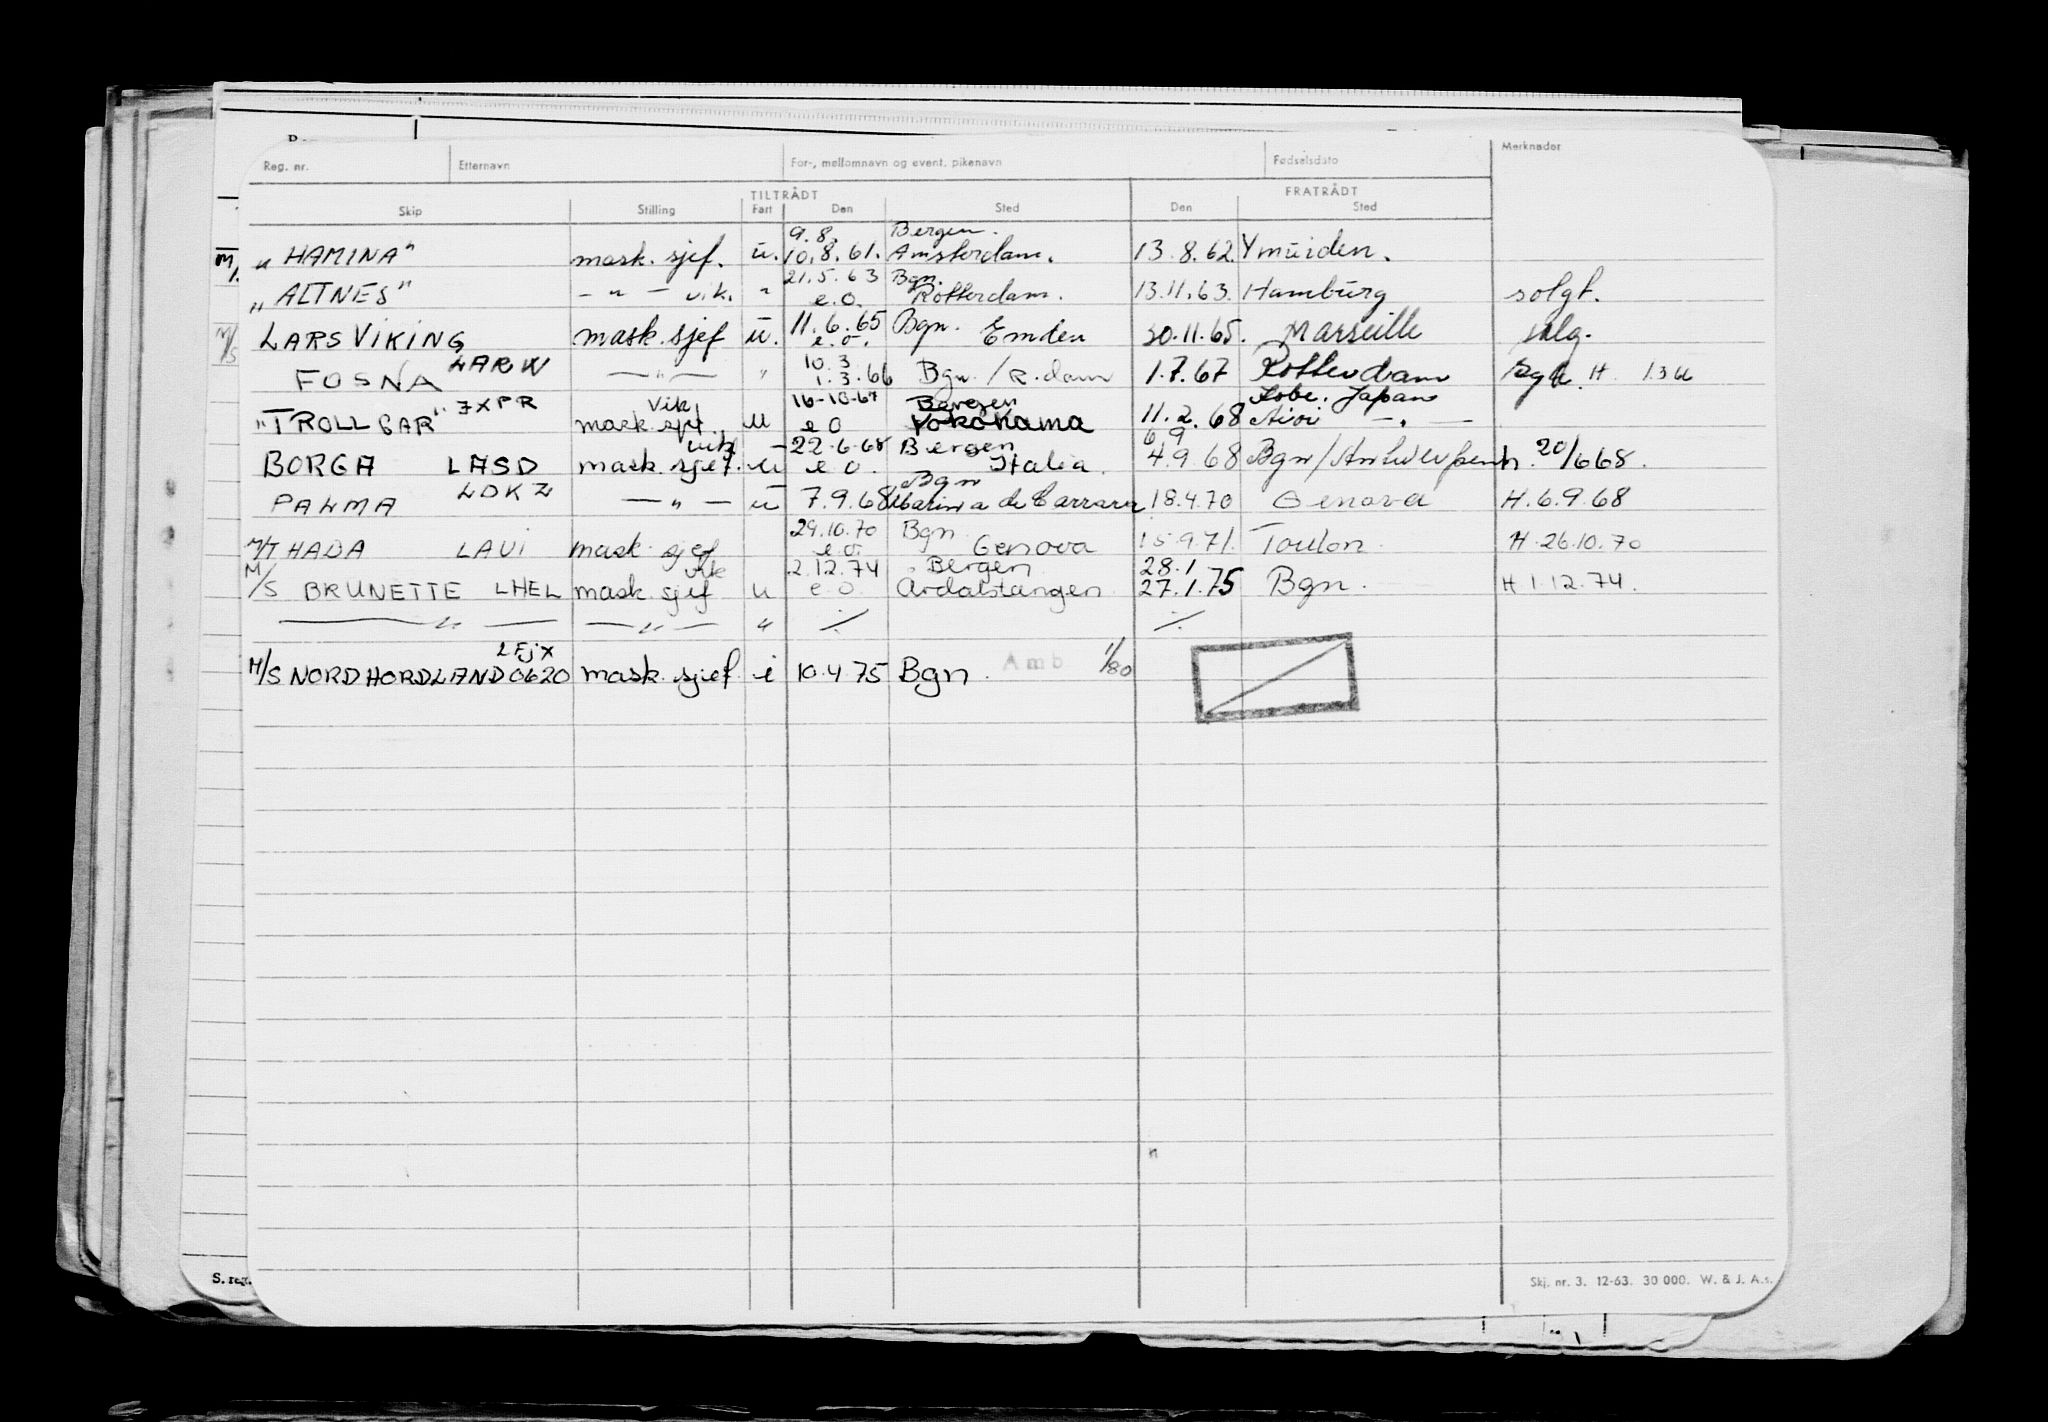 Reg. nr. Etternavn For-, mellomnavn og event. pikenavn Fødselsdato Merknader
TILTRÅDT FRATRÅDT
Skip Stilling Fart Den Sted Den Sted
9.8. Bergen.
M/ "HAMINA" mask. sjef. u. 10.8.61. Amsterdam. 13.8.62. Ymuiden.
21.5.63 Bgn.
"ALTNES" - " - vik. " e.o. Rotterdam. 13.11.63. Hamburg solgt.
M/S LARS VIKING mask. sjef u. 11.6.65 Bgn. Emden 30.11.65. Marseille
e.o.
LARW 10.3
FOSNA - " - " 1.3.66 Bgn./R.dam 1.7.67 Rotterdam H 1.3
JXPR Vik 16-10-67 Bergen Kobe. Japan
"TROLLGAR" mask sjef. u e o Yokohama 11.2.68 Aioi - " -
vik 22-6-68 Bergen 6 9
BORGA LASD mask. sjef. u e o. Italia. 4.9.68 Bgn/Antwerpen h. 20/6 68.
LDKZ Bgn
PALMA - " - u 7.9.68 Marina de Carrara 18.4.70 Genova H.6.9.68
29.10.70 Bgn
M/T HADA LAUI mask. sjef e.o. Genova 15.9.71. Toulon. H.26.10.70
vik 2.12.74 Bergen 28.1
M/S BRUNETTE LHEL mask sjef u e.o. Ardalstangen 27.1.75 Bgn. H 1.12.74.
- " - - " - " ./. ./.
LFJX
M/S NORDHORDLAND 0620 mask. sjef. i 10.4 75 Bgn. Amb 1/80
S. reg.
Skj. nr. 3. 12-63. 30 000. W. & J. A.s.